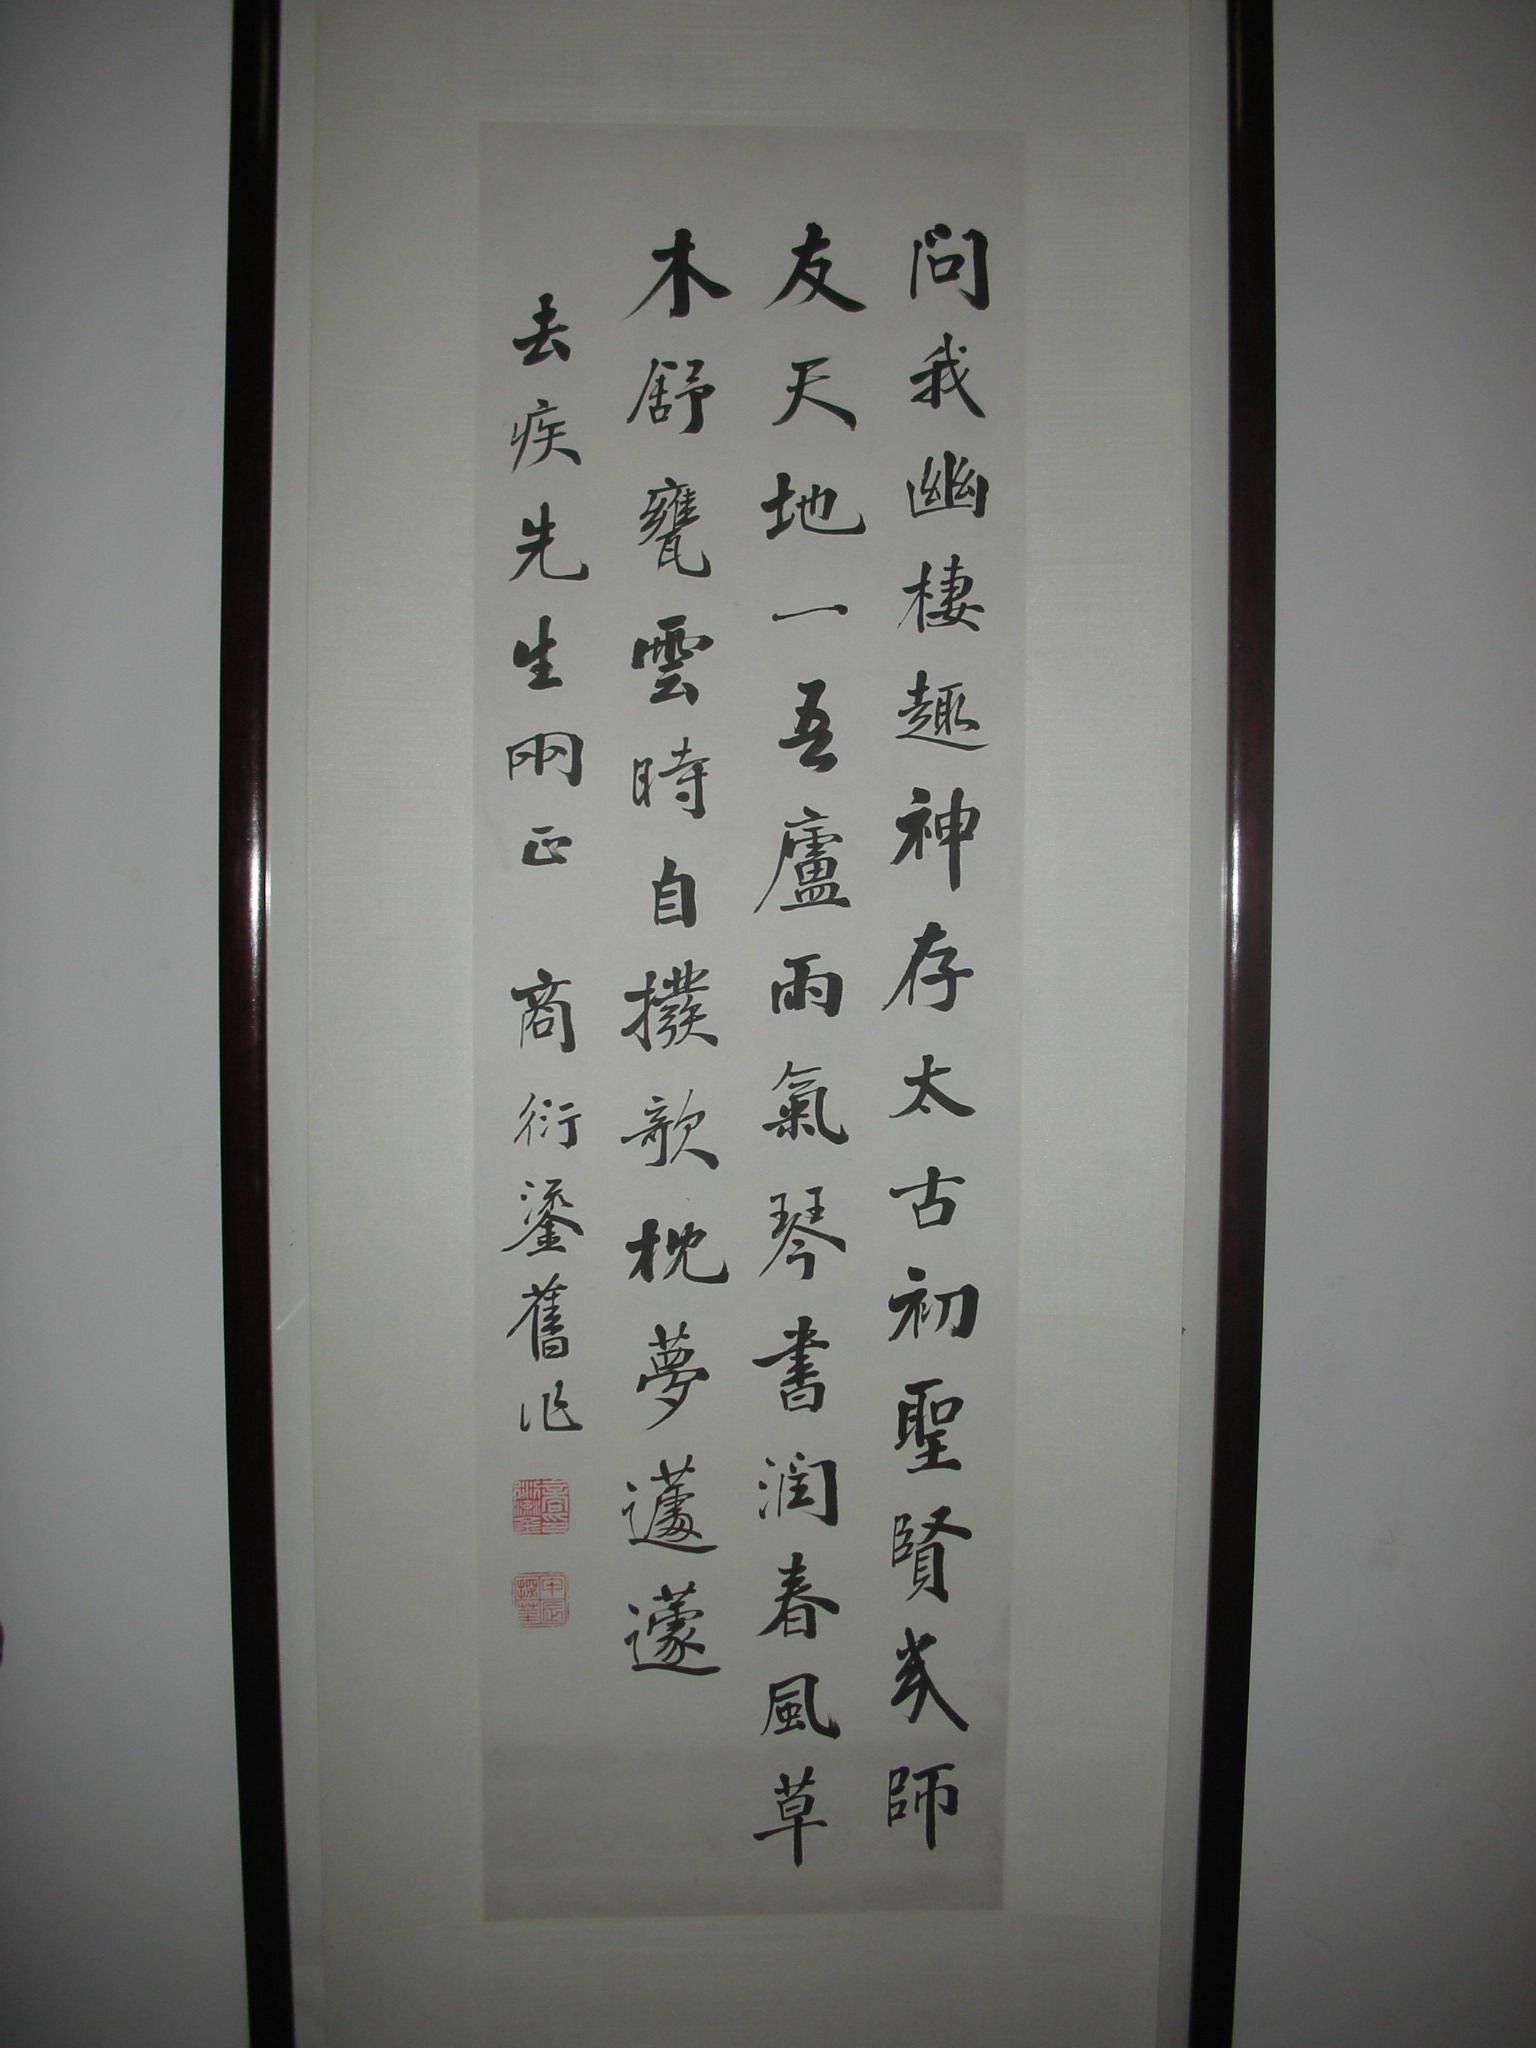 問我幽棲趣神存太古初聖賢幾師
友天地一吾廬雨氣琴書潤春風草
木舒甕雲時自撥欹枕夢蘧蘧
去疾先生兩正 商衍鎏舊作
甲辰探花